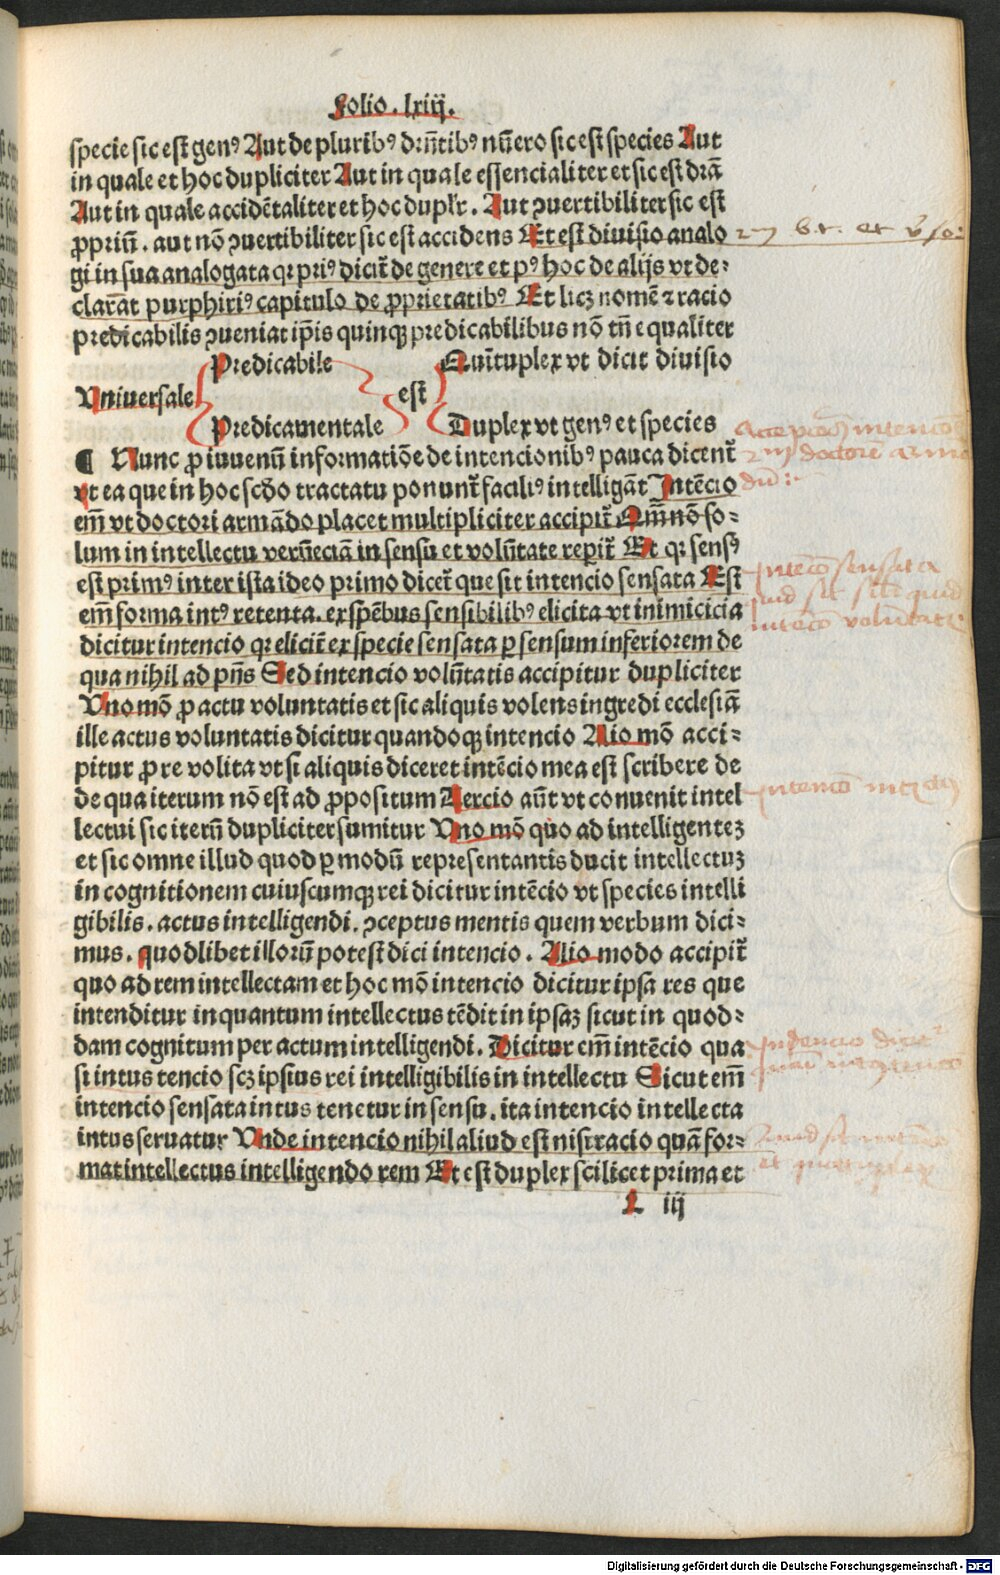 Folio. lxiij.
specie sic est genꝰ Aut de pluribꝰ driñtibꝰ nūero sic est species Aut
in quale et hoc dupliciter Aut in quale essencialiter et sic est drā
Aut in quale accidētaliter et hoc duplr̄. Aut ꝯuertibiliter sic est
ꝓpriū. aut nō ꝯuertibiliter sic est accidens Et est diuisio analo
gi in sua analogata qꝛ priꝰ dicit̄ de genere et pꝰ hoc de alijs vt de⸗
clarāt purphiriꝰ capitulo de ꝓprietatibꝰ Et licꝫ nomē ⁊ racio
predicabilis ꝯueniat ip̄is quinqꝫ predicabilibus nō tn̄ equaliter
Predicabile Quītuplex vt dicit diuisio
Vniuersale est
Predicamentale Duplex vt genꝰ et species
¶ Nunc ꝓ iuuenū informatiōe de intencionibꝰ pauca dicent̄
vt ea que in hoc scd̄o tractatu ponunt̄ faciliꝰ intelligāt Intēcio
em̄ vt doctori armādo placet multipliciter accipit̄ Qm̄ nō so⸗
lum in intellectu verūeciā in sensu et volūtate reperit̄ Et qꝛ sensꝰ
est primꝰ inter ista ideo primo dicet̄ que sit intencio sensata Est
em̄ forma intꝰ retenta. ex spēbus sensibilibꝰ elicita vt inimicicia
dicitur intencio qꝛ elicit̄ ex specie sensata ꝑ sensum inferiorem de
qua nihil ad pn̄s Sed intencio volūtatis accipitur dupliciter
Vno mō ꝓ actu voluntatis et sic aliquis volens ingredi ecclesiā
ille actus voluntatis dicitur quandoqꝫ intencio Alio mō acci⸗
pitur ꝓ re volita vt si aliquis diceret intēcio mea est scribere de
de qua iterum nō est ad ꝓpositum Tercio aūt vt conuenit intel
lectui sic iterū dupliciter sumitur Vno mō quo ad intelligenteꝫ
et sic omne illud quod ꝑ modū representantis ducit intellectuꝫ
in cognitionem cuiuscumqꝫ rei dicitur intēcio vt species intelli
gibilis. actus intelligendi. ꝯceptus mentis quem verbum dici⸗
mus. quodlibet illorū potest dici intencio. Alio modo accipit̄
quo ad rem intellectam et hoc mō intencio dicitur ipsa res que
intenditur inquantum intellectus tēdit in ipsaꝫ sicut in quod⸗
dam cognitum per actum intelligendi. Dicitur em̄ intēcio qua
si intus tencio scꝫ ipsius rei intelligibilis in intellectu Sicut em̄
intencio sensata intus tenetur in sensu. ita intencio intellecta
intus seruatur Vnde intencio nihil aliud est nisi racio quā for⸗
mat intellectus intelligendo rem Et est duplex scilicet prima et
L iij
Intēco sensata
quid sit sil't quid
intēco volūtat
Digitalisierung gefördert durch die Deutsche Forschungsgemeinschaft - DFG